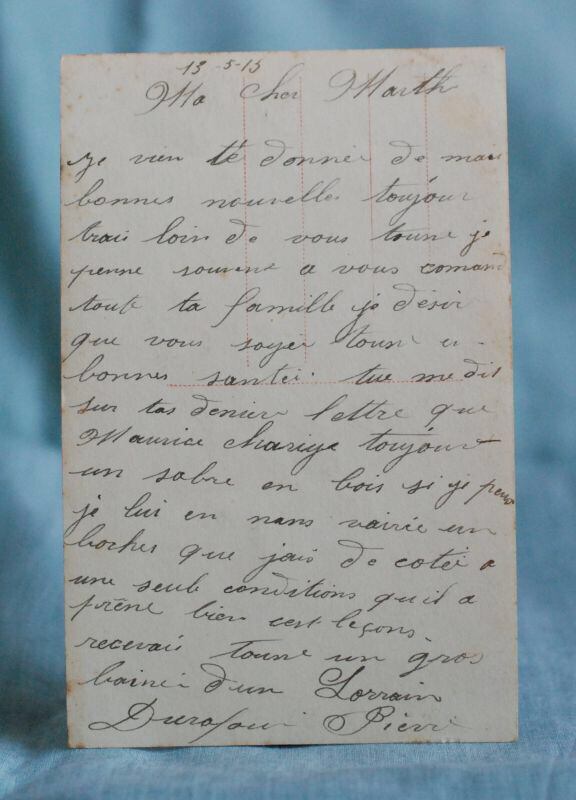 13 5-15
Ma cher Marth
Je vien te donnée de mais
bonnes nouvelles toujour
trais loin de vous toune je
penne souvene a vous comand
toute ta famille je désir
que vous soyer toune en
bonnes santée. tue me dit
sur tas denier lettre que
Maurice chariye toujour
un sabre en bois si je peus
je lui en nans vairée un
boches que jais de cotée a
une seule conditions quil a
prêne bien cest leçons.
recevais toune un gros
baiser d'un Lorrain
Pierre